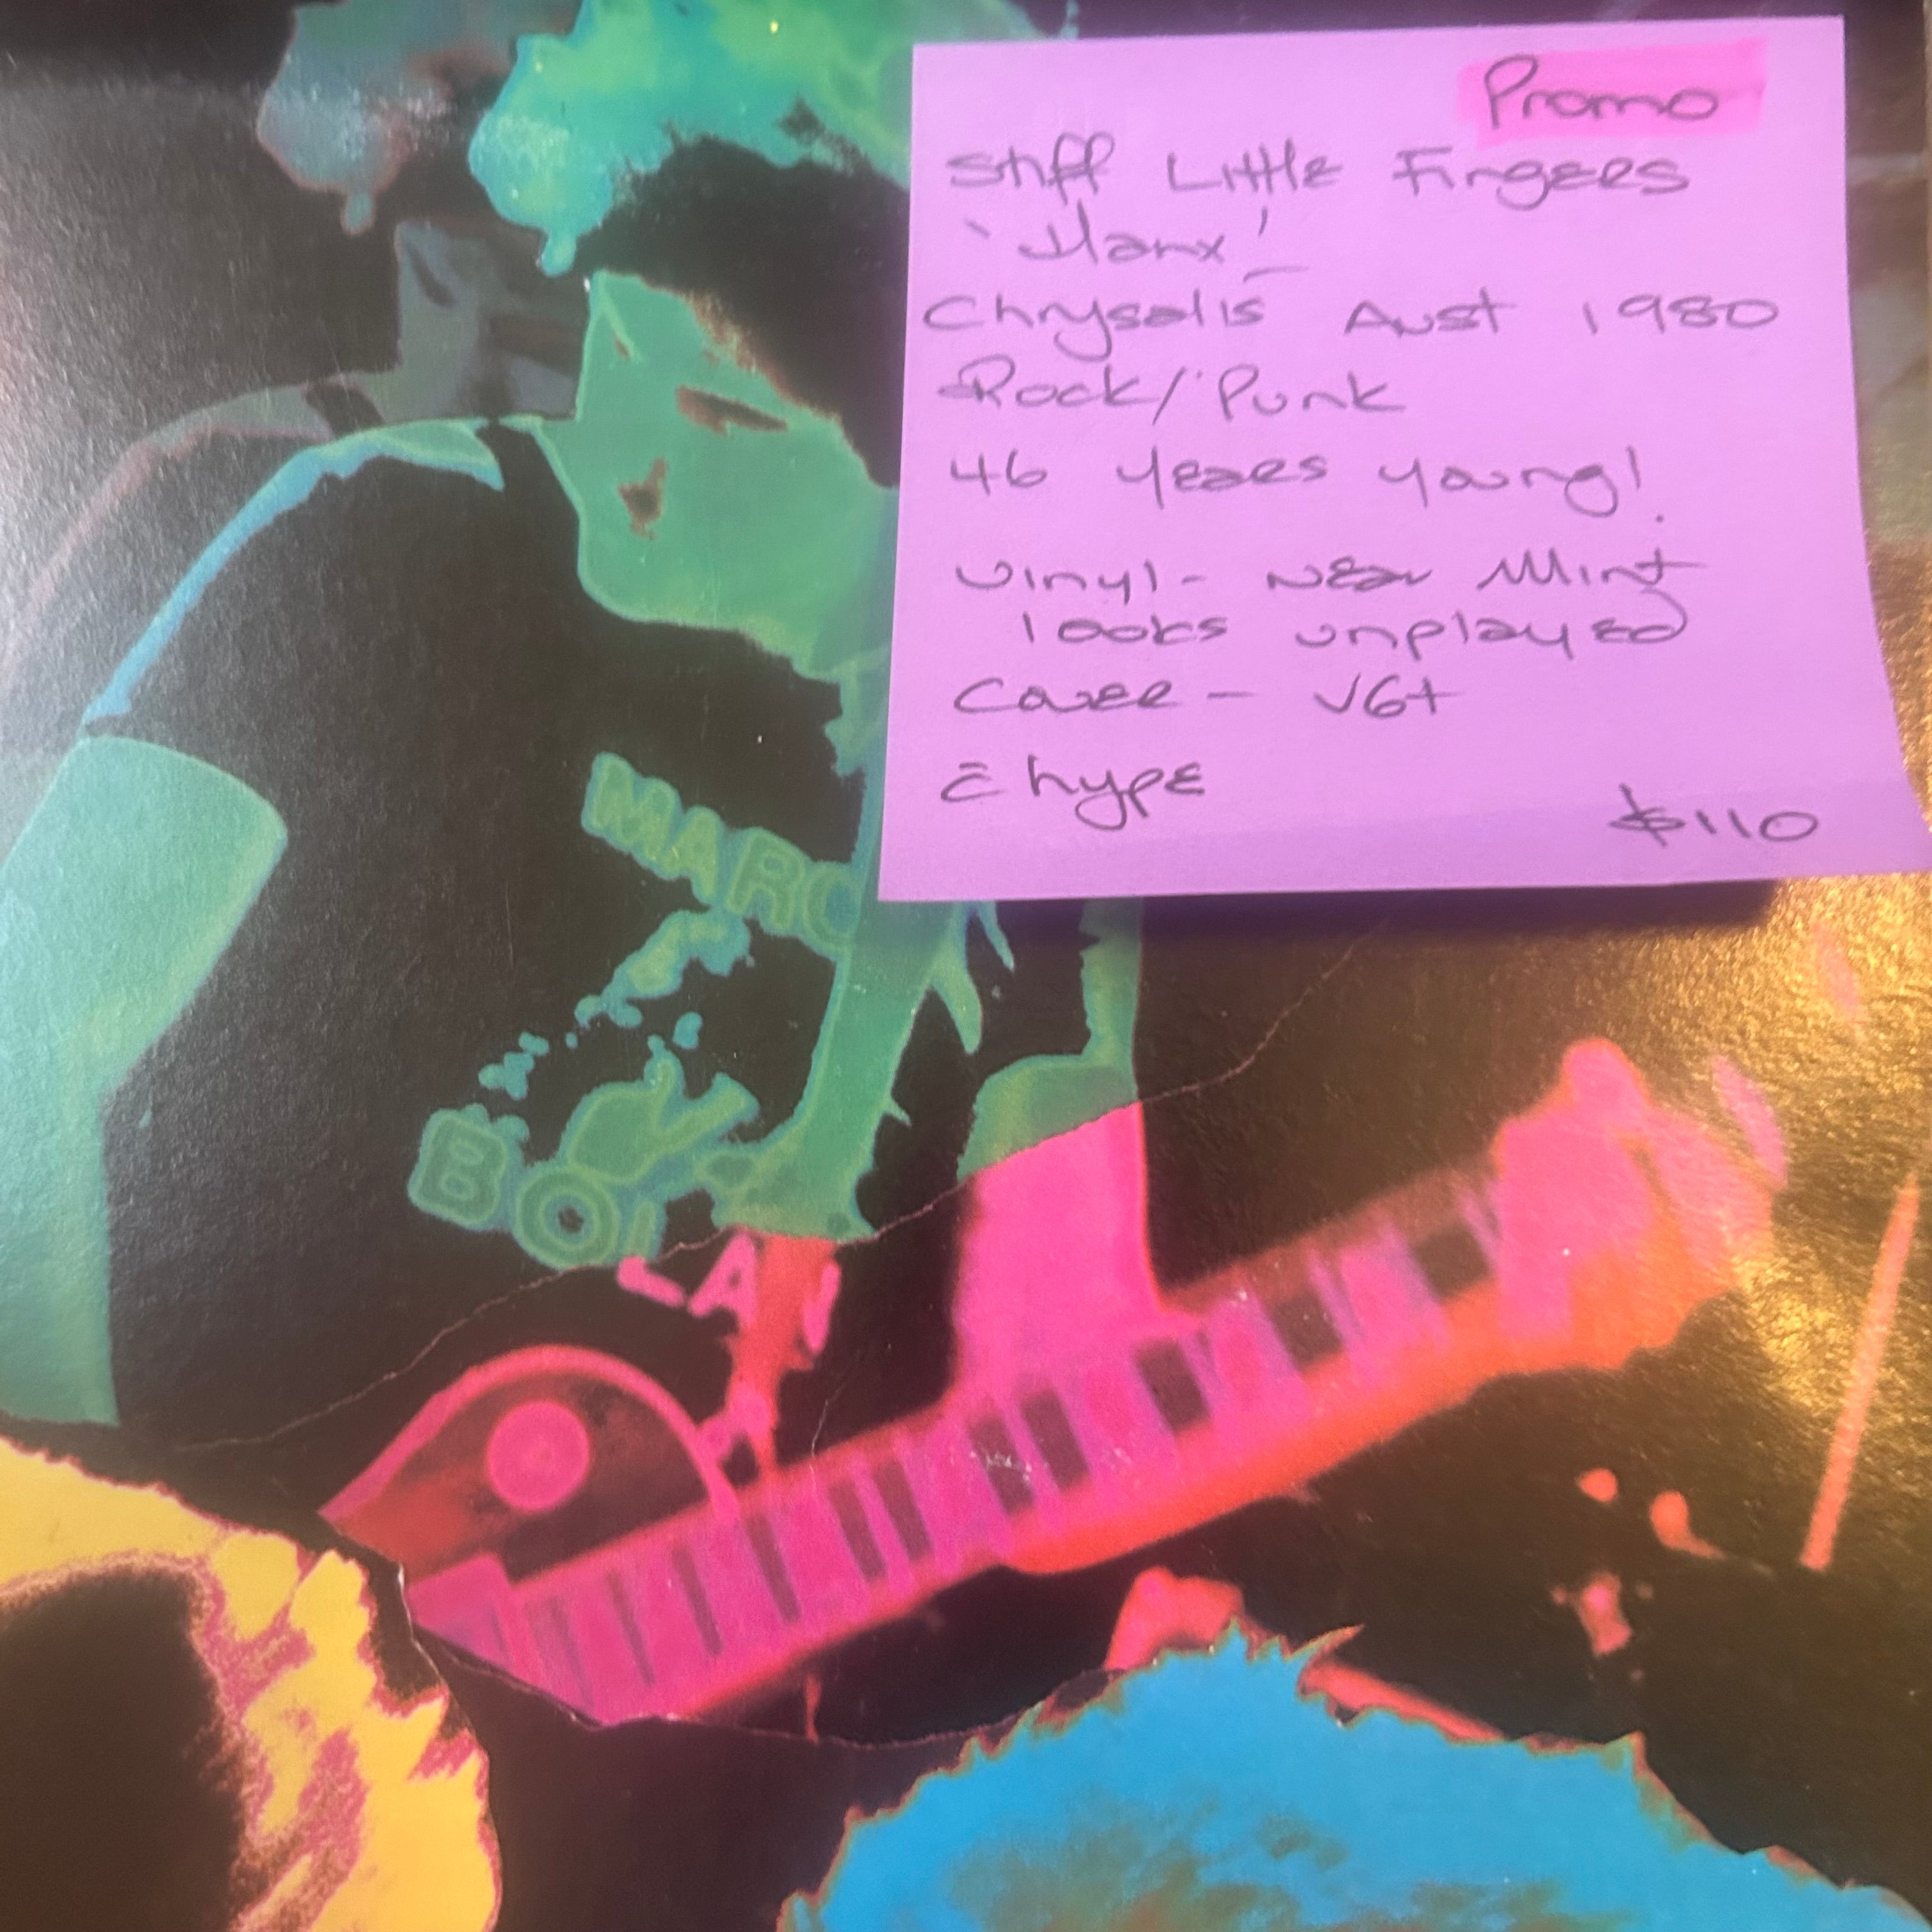 Promo
Stiff Little Fingers
'Hanx'
Chrysalis Aust 1980
Rock/Punk
46 years young!
Vinyl - Near Mint
looks unplayed
Cover - VG+
c̄ hype
$110
MARC
BOLAN